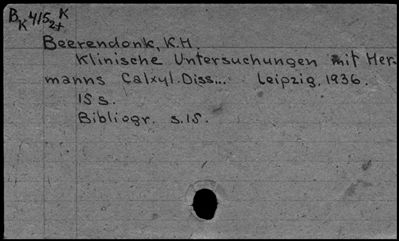 BK 415 2+ K
Beerendonk, K.H.
Klinische Untersuchungen mit Her-
manns Calxyl. Diss... Leipzig, 1936.
15 s.
Bibliogr. s.15.